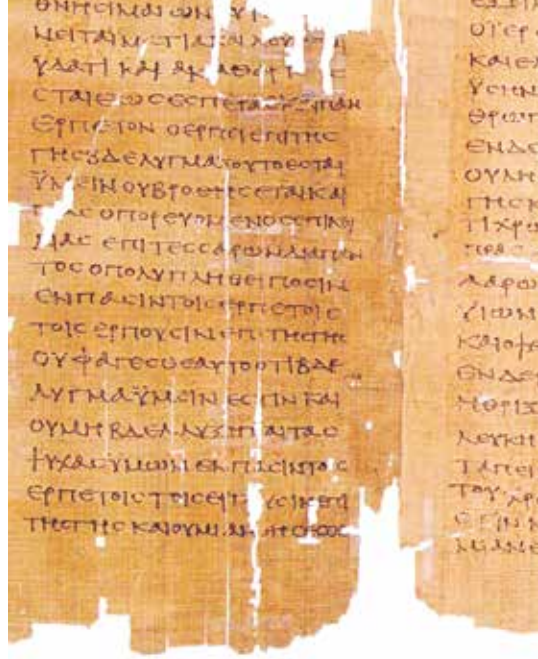 ΘΝΗCΙΜΑΙΩΝ
ΥΔΑΤΙ ΚΑΙ ΑΚΑΘΑΡΤ C
CΤΑΙΕΩCΕCΠΕΡΑCΚΑΙΠΑΝ
ΕΡΠΕΤΟΝ ΟΕΡΠΕΙΕΠΙΤΗC
ΓΗCΒΔΕΛΥΓΜΑΤΟΥΤΟΕCΤΑΙ
ΫΜΕΙΝΟΥΒΡΟΘΗCΕΤΑΙΚΑΙ
ΠΑC ΟΠΟΡΕΥΟΜΕΝΟCΕΠΙΚΟΙ
ΛΙΑC ΕΠΙΤΕCCΑΡΩΝΔΙΑΠΑΝ
ΤΟC ΟΠΟΛΥΠΛΗΘΕΙΠΟCΙΝ
ΕΝΠΑCΙΝΤΟΙCΕΡΠΕΤΟΙC
ΤΟΙC ΕΡΠΟΥCΙΝΕΠΙΤΗCΓΗC
ΟΥΦΑΓΕCΘΕΑΥΤΟΟΤΙΒΔΕ
ΛΥΓΜΑΫΜΕΙΝ ΕCΤΙΝ ΚΑΙ
ΟΥΜΗ ΒΔΕΛΛΥΞΗΤΑΙΤΑC
ΨΥΧΑCΥΜΩΝ ΕΝΠΑCΙΝΤΟ C
ΕΡΠΕΤΟΙC ΤΟΙCΕΡΠ ΥCΙΝΕΠΙ
ΤΗCΓΗC ΚΑΙΟΥΜΙΑΝ ΗCΕCΘΕ
ΟΙΕΡ
ΚΑΙΕΛ
ΥCΗΝ
ΘΡΩΠ
ΕΝΔΕ
ΟΥΛΗ
ΓΗCΚ
ΤΙΧΡΩ
ΠΡΟC
ΑΑΡΩ
ΥΙΩΝ
ΚΑΙΟΨΕ
ΕΝΔΕΡ
ΗΘΡΙΞ
ΛΕΥΚΗ
ΤΑΠΕΙ
ΤΟΥ ΧΡΟ
ΕΤΙΝ
ΜΙΑΝΕ